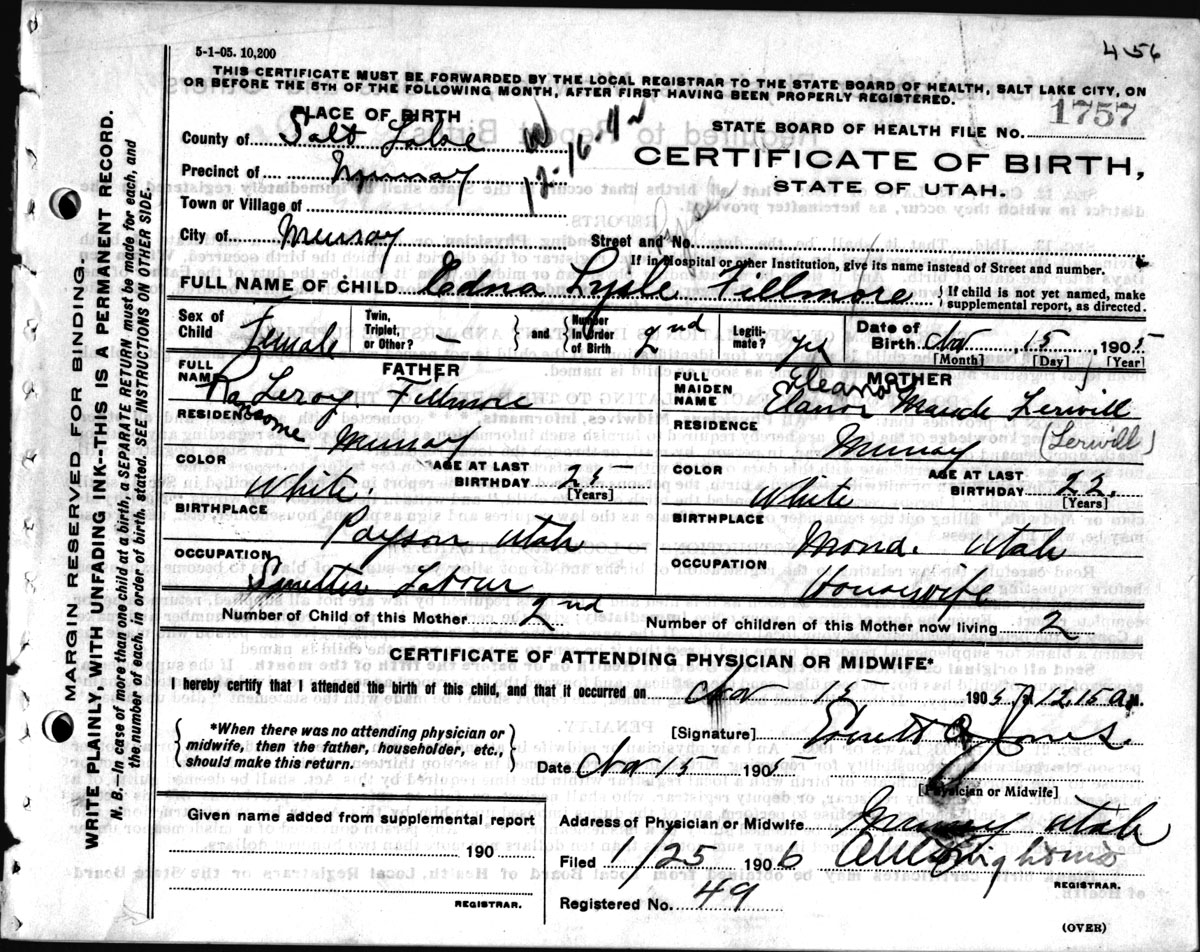 5-1-05. 10,200
456
THIS CERTIFICATE MUST BE FORWARDED BY THE LOCAL REGISTRAR TO THE STATE BOARD OF HEALTH, SALT LAKE CITY, ON
OR BEFORE THE 5TH OF THE FOLLOWING MONTH, AFTER FIRST HAVING BEEN PROPERLY REGISTERED.
PLACE OF BIRTH
County of Salt Lake
STATE BOARD OF HEALTH FILE NO. 1757
CERTIFICATE OF BIRTH,
STATE OF UTAH.
Precinct of Murray
Town or Village of
City of Murray Street and No.
If in Hospital or other Institution, give its name instead of Street and number.
FULL NAME OF CHILD Edna Lysle Fillmore { If child is not yet named, make supplemental report, as directed.
Sex of Child Female Twin, Triplet, or Other? — } and { Number in Order of Birth 2nd Legitimate? yes Date of Birth Nov 15 1905
[Month] [Day] [Year]
FATHER
FULL NAME Ransome Leroy Fillmore
RESIDENCE Murray
COLOR White. AGE AT LAST BIRTHDAY 25
[Years]
BIRTHPLACE Payson Utah
OCCUPATION Smelter Labour
MOTHER
Eleanor
FULL MAIDEN NAME Elanor Maude Lerwill
RESIDENCE Murray (Lerwill)
COLOR White AGE AT LAST BIRTHDAY 22.
[Years]
BIRTHPLACE Mona. Utah
OCCUPATION Housewife
Number of Child of this Mother 2nd Number of children of this Mother now living 2
CERTIFICATE OF ATTENDING PHYSICIAN OR MIDWIFE*
I hereby certify that I attended the birth of this child, and that it occurred on Nov 15, 1905, 12,15 a m.
*When there was no attending physician or midwife, then the father, householder, etc., should make this return.
[Signature] Jones.
Date Nov 15 1905
[Physician or Midwife]
Given name added from supplemental report
190
REGISTRAR.
Address of Physician or Midwife Murray Utah
Filed 1/25 1906
REGISTRAR.
Registered No. 49
(OVER)
MARGIN RESERVED FOR BINDING
WRITE PLAINLY, WITH UNFADING INK--THIS IS A PERMANENT RECORD.
N. B.—In case of more than one child at a birth a SEPARATE RETURN must be made for each, and
the number of each, in order of birth, stated. SEE INSTRUCTIONS ON OTHER SIDE.